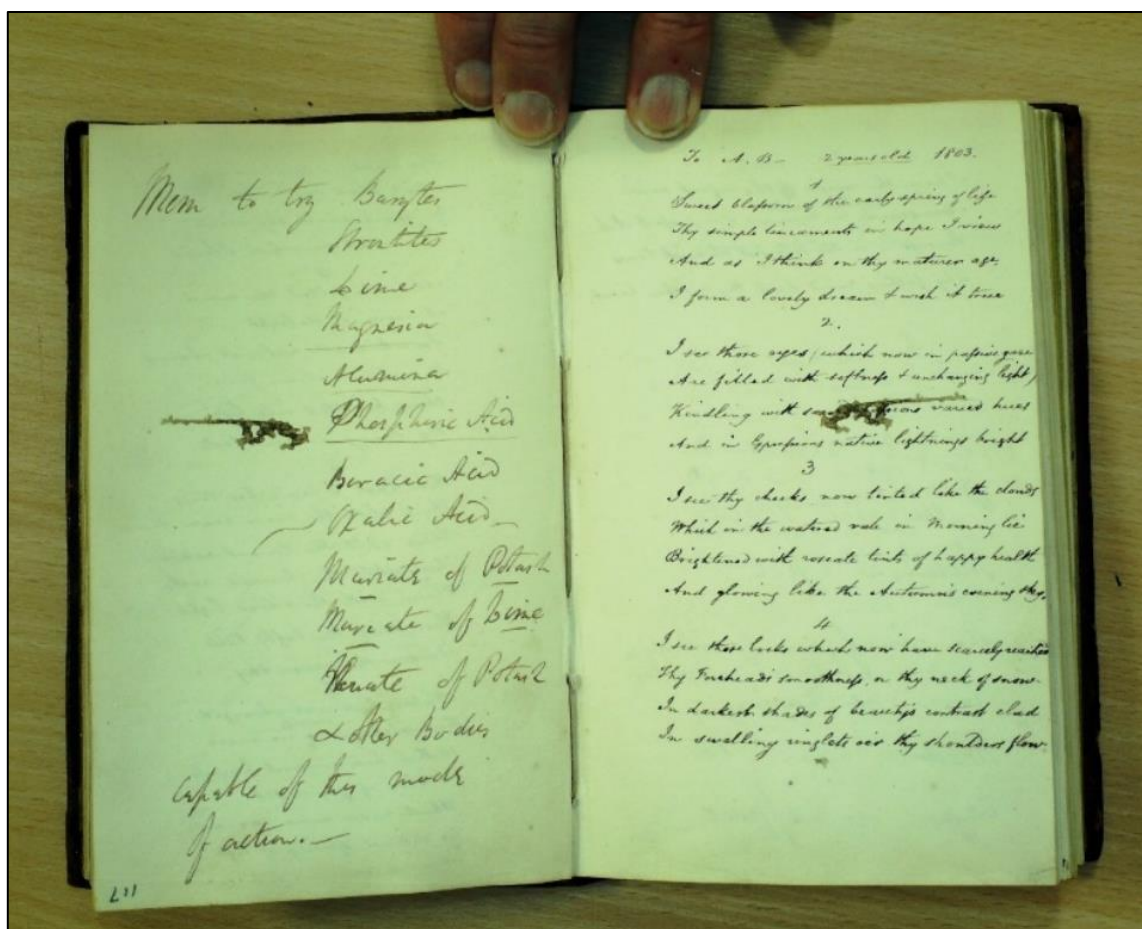 Mem to try Barytes
Strontites
Lime
Magnesia
Alumina
Phosphoric Acid
Boracic Acid
Oxalic Acid
Muriate of Potash
Muriate of Lime
of Potash
& other Bodies
capable of this mode
of action.—
117
To A. B— 2 years old 1803.
1
Sweet blossom of the early spring of life
Thy simple lineaments in hope I view
And as I think on thy maturer age
I form a lovely dream & wish it true
2.
I see those eyes (which now in passive gaze
Are filled with softness & unchanging light)
Kindling with varied hues
And in Expressions native lightnings bright
3
I see thy cheeks now tinted like the clouds
Which in the watered vale in Morning lie
Brightened with roseate tints of happy health
And glowing like the Autumn's evening sky.
4
I see those locks which now have scarcely reached
Thy Foreheads smoothness, or thy neck of snow
In darkest shades of beauty's contrast clad
In swelling ringlets oer thy shoulders flow.